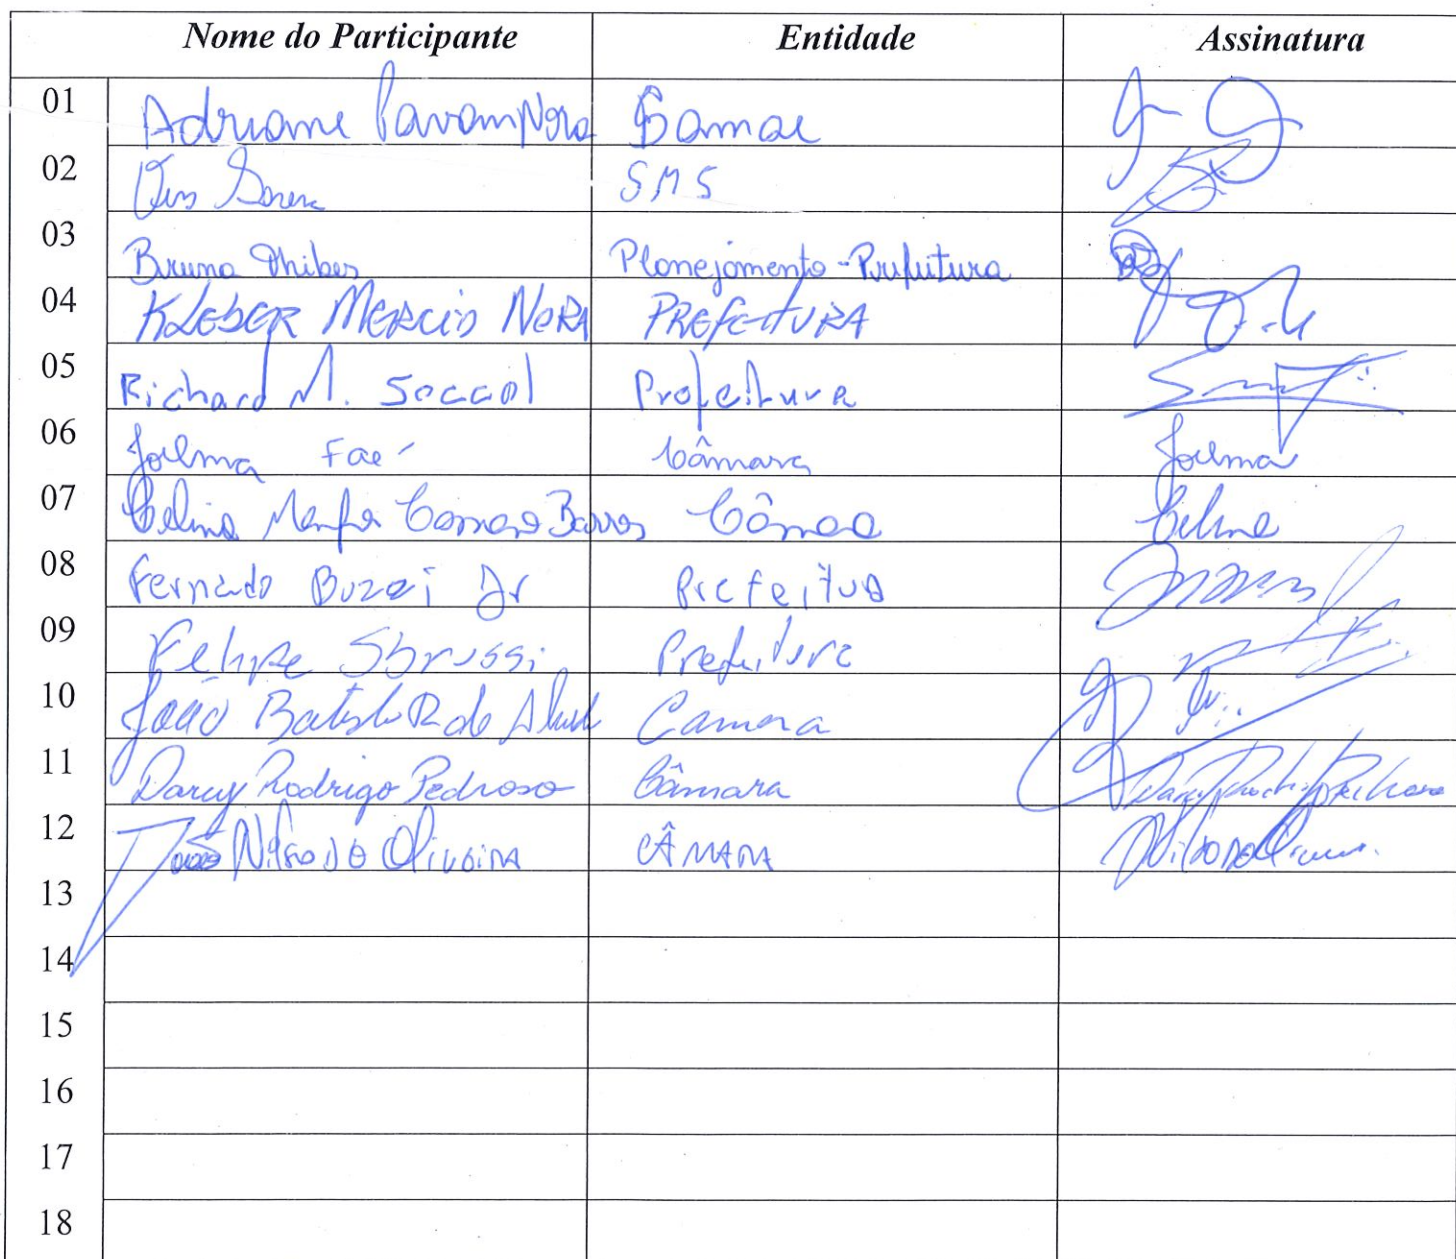 Nome do Participante Entidade Assinatura
01 Adriane Pavam Nora Samae
02 SMS
03 Bruna Thibes Planejamento - Prefeitura
04 KLEBER MERCIO NORA PREFEITURA
05 Richard M. Soccol Prefeitura
06 Joelma Faé Câmara Joelma
07 Celina Câmara Celina
08 Fernando Buzzi Jr Prefeitura
09 Felipe Sbrussi Prefeitura
10 João Batista R de Camara
11 Darcy Rodrigo Pedroso Câmara
12 Nilso de Oliveira CÂMARA
13
14
15
16
17
18